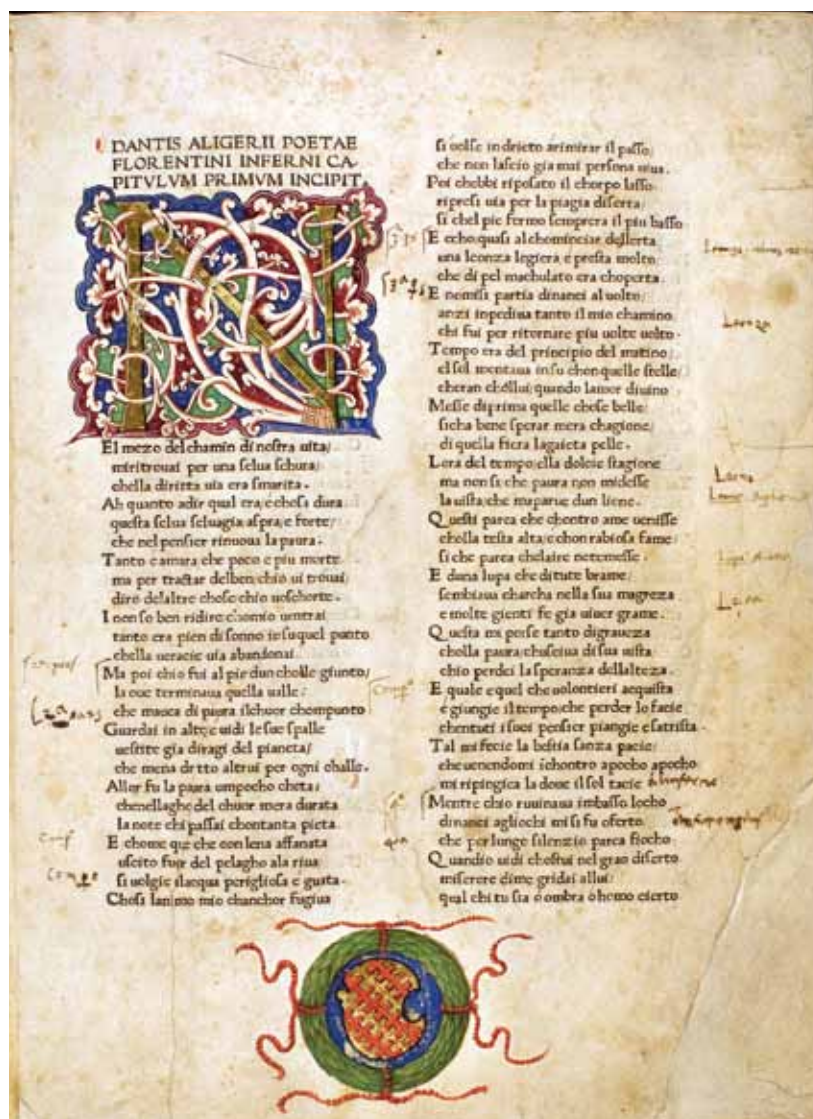 DANTIS ALIGERII POETAE
FLORENTINI INFERNI CA-
PITVLVM PRIMVM INCIPIT.
N
El mezo del chamin di nostra uita/
miritrouai per una selua schura/
chella diritta uia era smarita.
Ah quanto adir qual era/e chosa dura
questa selua seluagia/aspra/e forte/
che nel pensier rinuoua la paura.
Tanto e amara che poco e piu morte
ma per tractar delben/chio ui trouai/
diro delaltre chose chio uoschorte.
I non so ben ridire chomio uentrai
tanto era pien di sonno insuquel punto
chella ueracie uia abandonai.
Ma poi chio fui al pie dun cholle giunto/
la oue terminaua quella ualle/
che maeca di paura ilchuor chompunto
Guardai in alto/e uidi le sue spalle
uestite gia diragi del pianeta/
che mena dritto altrui per ogni challe.
Allor fu la paura umpocho cheta/
chenellaghe del chuor mera durata
la note chi passai chontanta pieta.
E chome que che con lena affanata
uscito fuir del pelagho ala riua/
si uolgie alacqua perigliosa e guata.
Chosi lanimo mio chanchor fugiua
si uolse indrieto arimirar il passo/
che non lascio gia mai persona uiua.
Poi chebbi riposato il chorpo lasso
ripresi uia per la piagia diserta/
si chel pie fermo semprera il piu basso
E echo quasi al chominciar dellerta
una leonza legiera e presta molto/
che di pel machulato era choperta.
E nomisi partia dinanci al uolto/
anzi inpediua tanto il mio chamino
chi fui per ritornare piu uolte uolto.
Tempo era del principio del matino/
elsol montaua inso chonquelle stelle/
cheran chollui/quando lamor diuino
Messe diprima quelle chose belle/
sicha bene sperar mera chagione/
di quella fiera lagaieta pelle.
Lora del tempo/ella dolcie stagione
ma non si che paura non midesse
la uista/che maparue dun lione.
Questi parea che chontro ame uenisse
cholla testa alta/e chon rabiosa fame/
si che parea chelaire netemesse.
E duna lupa che ditute brame/
sembiaua charcha nella sua magreza
e molte gienti fe gia uiuer grame.
Questa mi porse tanto digraueza
cholla paura/chusciua di sua uista
chio perdei la speranza dellalteza.
E quale e quel che uolontieri acquista
e giungie il tempo/che perder lo facie
chentuti i suoi pensier piangie e satrista.
Tal mi fecie la bestia sanza pacie/
che uenendomi ichontro apocho apocho
mi ripingiea la doue il sol tacie
Mentre chio ruuinaua imbasso locho
dinanci agliochi mi si fu oferto
che per lungo silenzio parea fiocho
Quandio uidi chostui nel gran diserto
miserere dime gridai allui/
qual chi tu sia o ombra o homo cierto
Leonza
Leone
Lupa